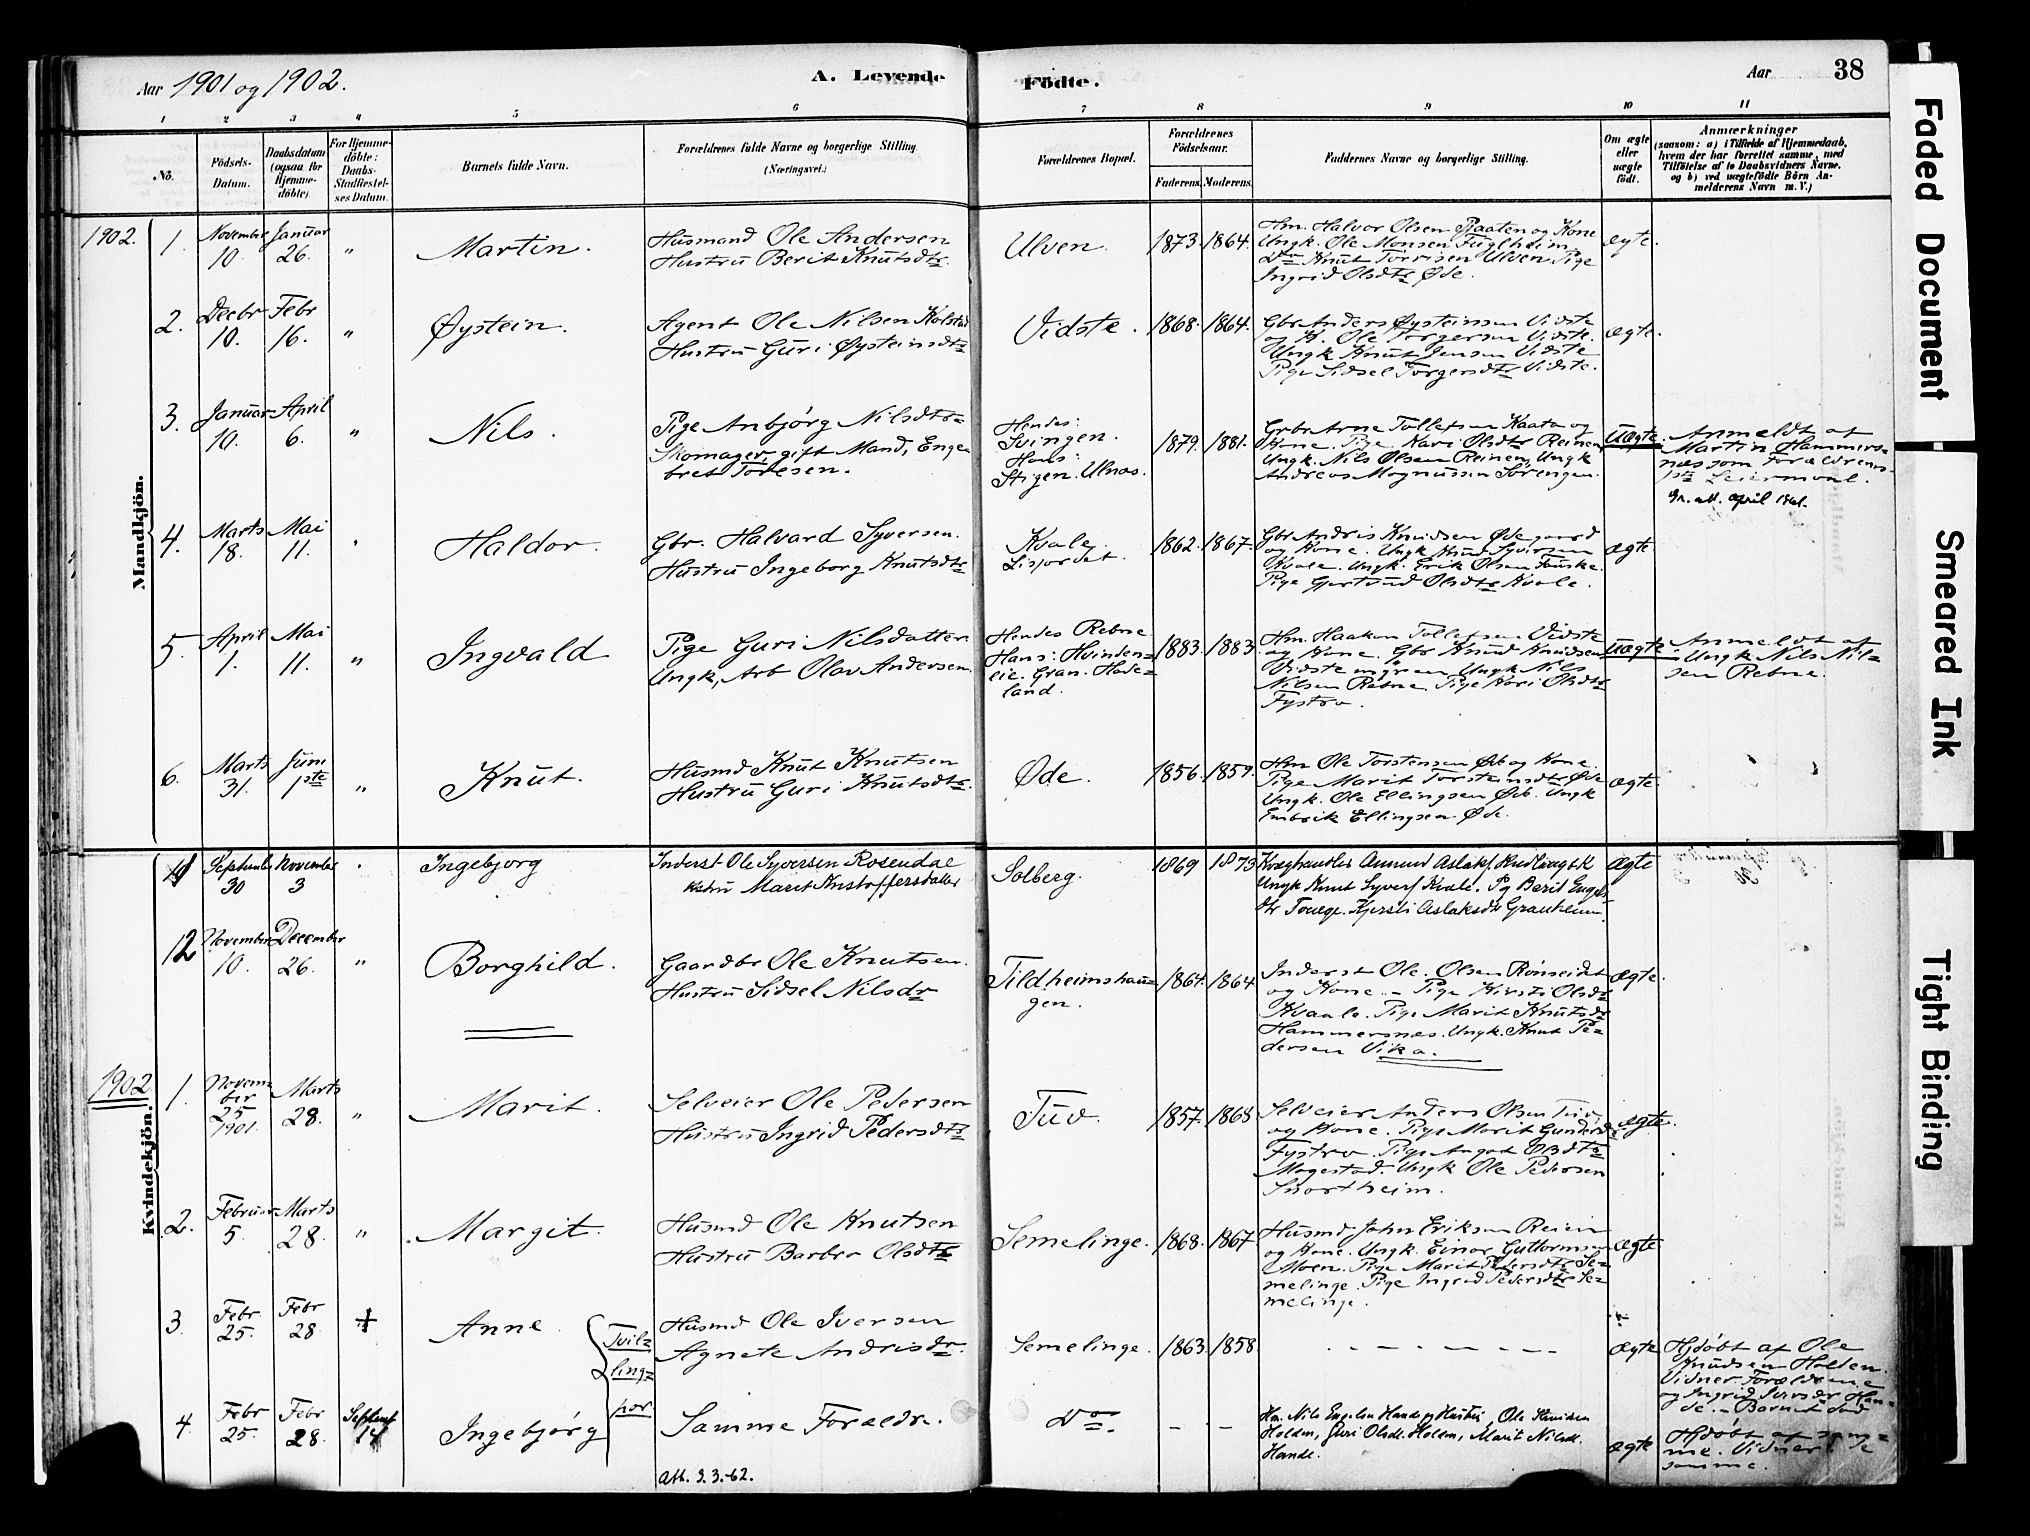 Aar 1901 og 1902.
A. Levende
Födte.
Aar
38
1 2 3 4 5 6 7 8 9 10 11
No.
Födsels-
Datum.
Daabsdatum
(ogsaa for
Hjemme-
döbte)
For Hjemme-
döbte:
Daabs-
Stadfæstel-
ses Datum.
Barnets fulde Navn.
Forældrenes fulde Navne og borgerlige Stilling
(Næringsvei.)
Forældrenes Bopæl.
Forældrenes
Födselsaar.
Faderens. Moderens.
Faddernes Navne og borgerlige Stilling.
Om ægte
eller
uægte
födt.
Anmærkninger
(saasom: a) i Tilfælde af Hjemmedaab,
hvem der har forrettet samme, med
Tilföielse af to Daabsvidners Navne.
og b) ved uægtefödte Börn An-
melderens Navn m. V.)
Mandkjön.
1902.
1. November 10. Januar 26. "
Martin.
Husmand Ole Andersen
Hustru Berit Knutsdtr.
Ulven. 1873. 1864.
Hm. Halvor Olsen Plaaten og Kone
Ungk. Ole Monsen Fuglheim
Do Knut Torrisen Ulven. Pige
Ingrid Olsdtr Øde.
ægte.
2. Decbr 10. Febr 16. "
Øystein.
Agent Ole Nilsen Kolstad
Hustru Guri Øysteinsdtr
Vidste. 1868. 1864.
Gbr Anders Øysteinsen Vidste
og K. Ole Torgersen Vidste.
Ungk Knut Jensen Vidste
Pige Sidsel Torgersdtr Vidste.
ægte.
3. Januar 10. April 6. "
Nils.
Pige Anbjørg Nilsdtr
Skomager, gift Mand, Enge
bret Toresen.
Hendes:
Svingen.
Hans:
Stigen. Ulnæs.
1879. 1881.
Grbr Arne Tollefsen Kaata og
Kone. Pige Kari Olsdtr Reinen
Ungk. Nils Olsen Reinen, Ungk
Andreas Magnussen Sørengen.
Uægte.
Anmeldt af
Martin Hammers-
næs som Forældrenes
1ste Leiermaal.
4. Marts 18. Mai 11.
Haldor.
Gbr. Halvard Syversen.
Hustru Ingeborg Knutsdtr
Kvale
Lisjordet
1862. 1867.
Gbr Andris Knudsen Ødegaard
og Kone. Ungk Knud Syversen
Kvale. Ungk. Erik Olsen Fauske.
Pige Gjertrud Olsdtr Kvale.
ægte
5. April 1. Mai 11. "
Ingvald
Pige Guri Nilsdatter
Ungk, Arb Olav Andersen.
Hendes Rebne
Hans: Hvinden-
eie. Gran. Hade-
land.
1883. 1883.
Hm. Haakon Tollefsen Vidste
og Kone. Gbr Knud Knudsen
Vidste Ungk Nils
Nilsen Rebne Pige Kari Olsdtr
Fystro.
Uægte.
Anmeldt af
Ungk Nils Nil-
sen Rebne.
6. Marts 31. Juni 1ste "
Knut.
Husmd Knut Knutsen
Hustru Guri Knutsdtr.
Øde. 1856. 1859.
Hm Ole Torstensen Øde og Kone.
Pige Marit Torsteinsdtr Øde
Ungk. Ole Ellingsen Øde. Ungk
Embrik Ellingsen Øde.
ægte.
Kvindekjön.
11 September 30 November 3
Ingebjørg
Inderst Ole Syversen Rosendal
Hustru Marit Kristoffersdatter
Solberg. 1869 1873
Ungk Knut Syvers Kvale. Pg Berit Engebr
dtr Tonege. Kjersti Aslaksdtr Grauheim.
ægte
12 November 10. December 26. "
Borghild.
Gaardbr Ole Knutsen.
Hustru Sidsel Nilsdr
Tildheimshau-
gen.
1864. 1864.
Inderst Ole Olsen Rønseidet
og Kone. - Pige Kirsti Olsdr
Kvaale. Pige Marit Knutsdr
Hammersnæs. Ungk. Knut Pe-
dersen Vika.
ægte.
1902.
1. Novem-
ber
25
1901.
Marts 28. "
Marit.
Selveier Ole Pedersen
Hustru Ingrid Pedersdtr
Tuv. 1857. 1868
Selveier Anders Olsen Tuv
og Kone. Pige Marit Gundersdr
Fystro. Pige Olsdtr
Magestad. Ungk Ole Pedersen
Snortheim.
ægte.
2. Februar 5. Marts 28. "
Margit.
Husmd Ole Knutsen
Hustru Barbro Olsdtr
Semelinge. 1868. 1867
Husmd John Eriksen Reien
og Kone. Ungk. Einar Guttormsen
Moen. Pige Marit Pedersdtr Se-
melinge. Pige Ingrid Pedersdtr Se-
melinge.
ægte.
3. Febr 25. Febr 28 +
Anne.
Tvil-
ling-
par
Husmd Ole Iversen
Agnete Andrisdr.
Semelinge. 1863. 1858
ægte
Hjdöbt af Ole
Knudsen Holden.
Vidner Forældrene
og Ingrid Iversdr Han-
de. - Barnet död
4. Febr 25. Febr 28. Septemb 14
Ingebjørg
Samme Forældre.
Do. - -
Hm. Nils Engelsen Hande og Hustru, Ole Knudsen
Holden, Guri Olsdtr. Holden, Marit Nilsdtr.
Hande.
ægte
Hjdöbt af sam-
me. Vidner: de
samme.
Att. 3.3.-62.
Faded Document
Smeared Ink
Tight Binding